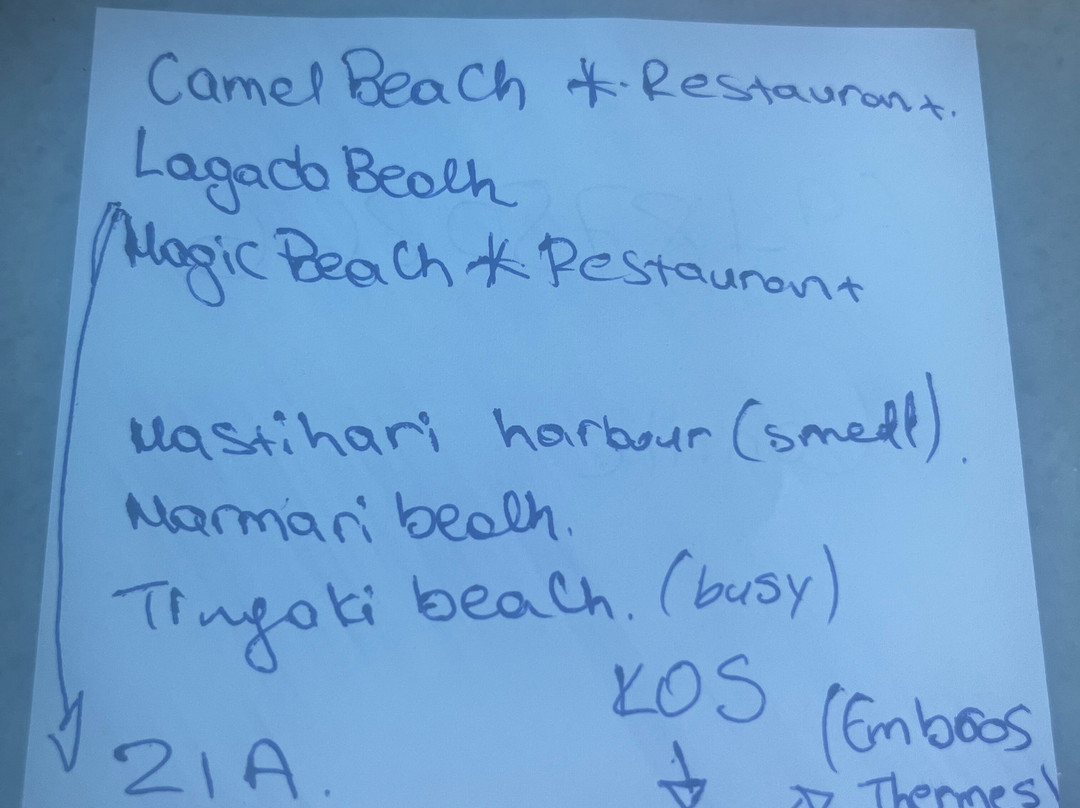 Camel Beach * Restaurant.
Lagado Beach
Magic Beach * Restaurant
Mastihari harbour (small).
Marmari beach.
Tingaki beach. (busy)
KOS
(Emboos
ZIA.
Thermes)